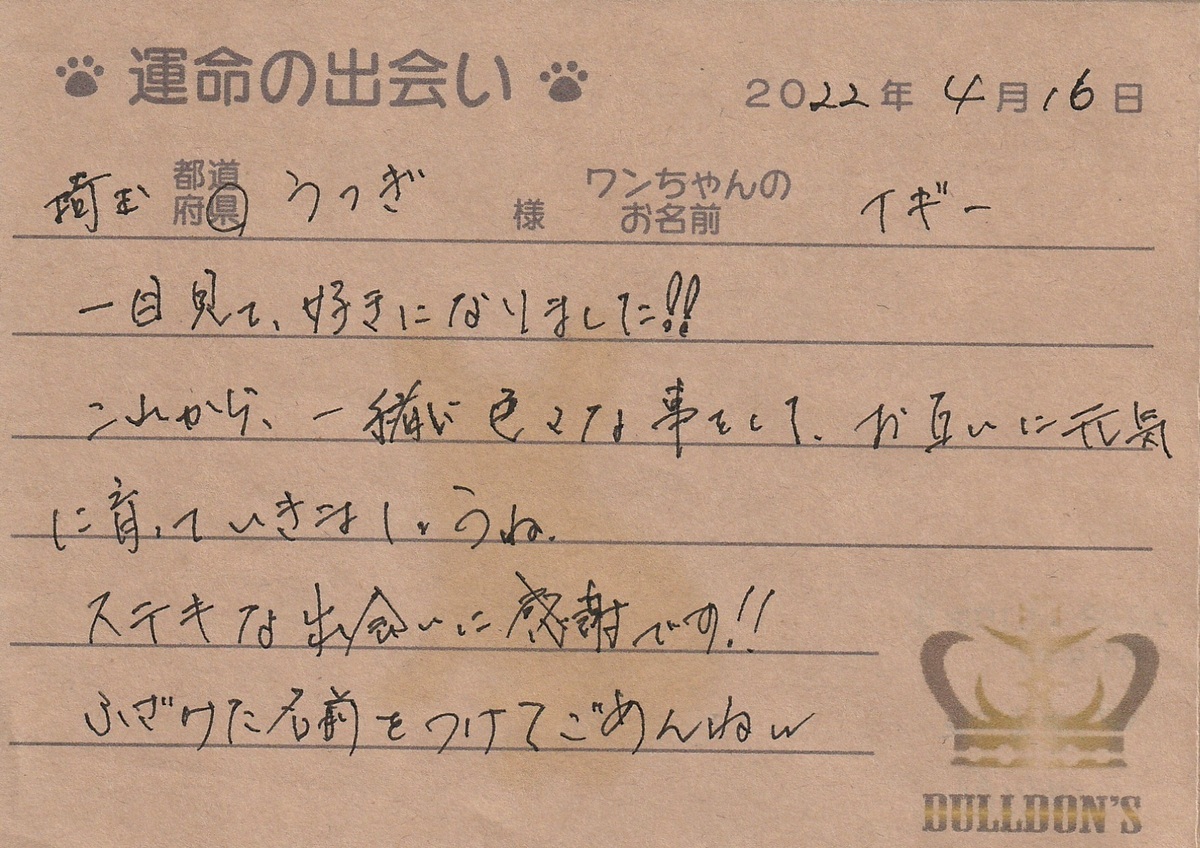 運命の出会い
2022年 4月16日
埼玉 都道府県 うつぎ 様 ワンちゃんのお名前 イギー
一目見て、好きになりました!!
これから、一緒に色々な事をして、お互いに元気
に育っていきましょうね.
ステキな出会いに感謝です!!
ふざけた名前をつけてごめんねw
BULLDON'S